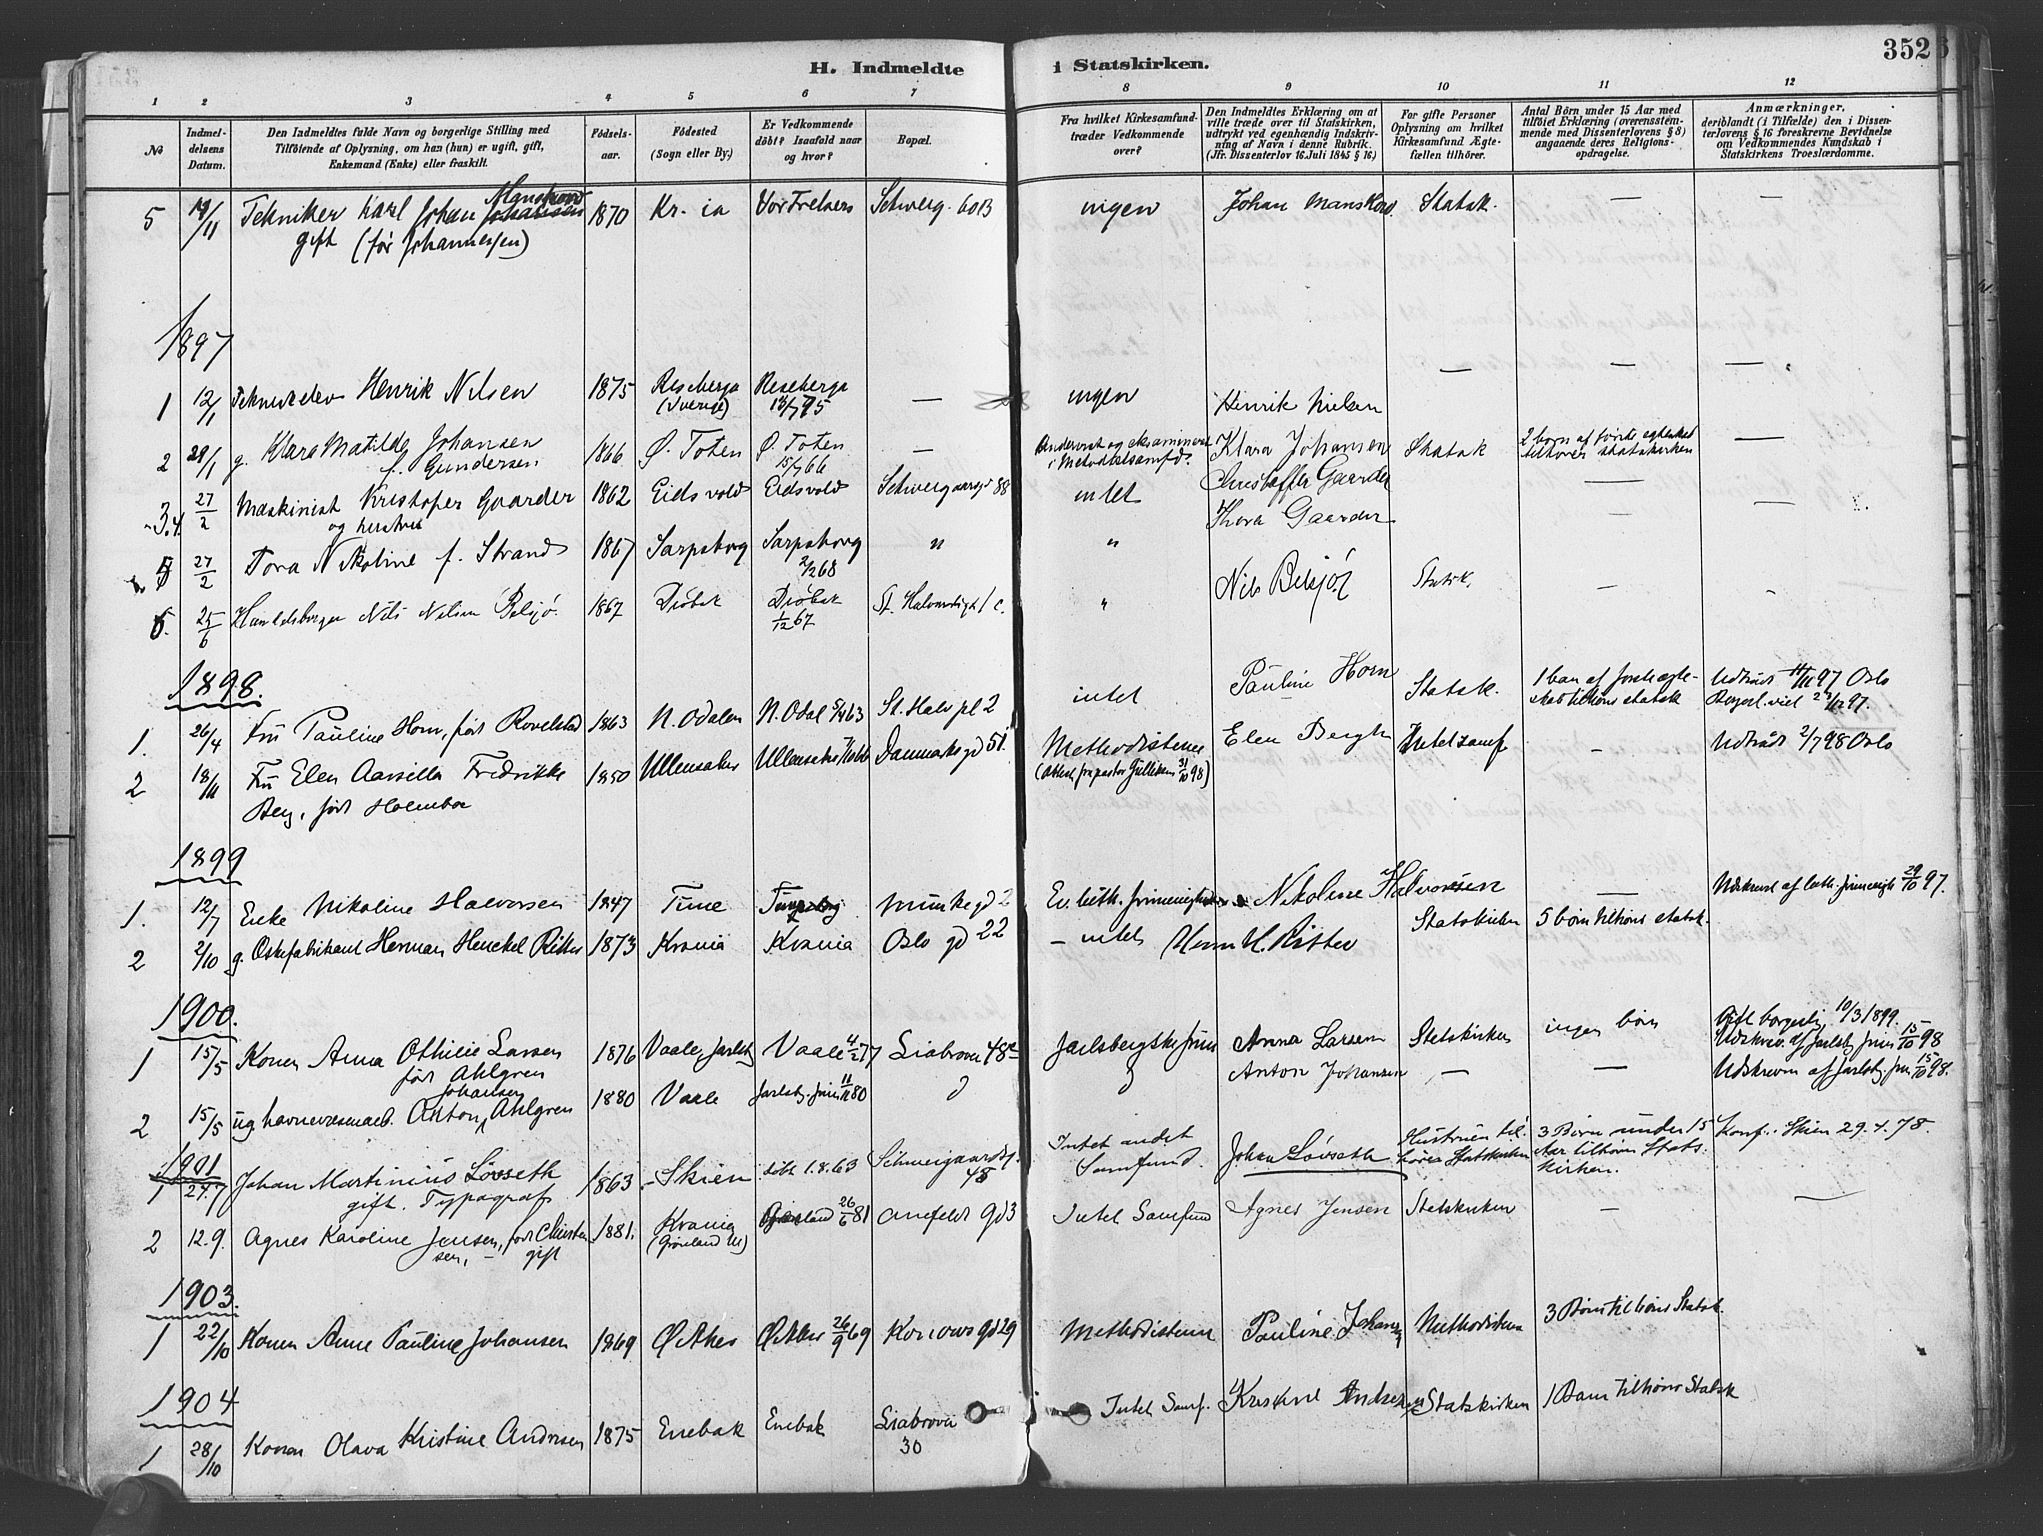 H. Indmeldte i Statskirken. 352
1 2 3 4 5 6 7 8 9 10 11 12
No
Indmeldelsens Datum.
Den Indmeldtes fulde Navn og borgerlige Stilling med Tilföiende af Oplysning, om han (hun) er ugift, gift, Enkemand (Enke) eller fraskilt.
Födselsaar.
Födested (Sogn eller By.)
Er Vedkommende döbt? Isaafald naar og hvor?
Bopæl.
Fra hvilket Kirkesamfund træder Vedkommende over?
Den Indmeldtes Erklæring om at ville træde over til Statskirken, udtrykt ved egenhændig Indskrivning af Navn i denne Rubrik. (Jfr. Dissenterlov 16. Juli 1845 § 16.)
For gifte Personer Oplysning om hvilket Kirkesamfund Ægtefællen tilhörer.
Antal Börn under 15 Aar med tilföiet Erklæring (overensstemmende med Dissenterlovens § 8) angaaende deres Religionsopdragelse.
Anmærkninger, deriblandt (i Tilfælde) den i Dissenterlovens § 16 foreskrevne Bevidnelse om Vedkommendes Kundskab i Statskirkens Troeslærdomme.
5 Tekniker Karl Johan Manskow 1870 Kr.ia Vor Frelsers Schweg. 60B ingen Johan Manskow Statsk. — —
gift (før Johannessen)
1897
1 12/1 Henrik Nilsen 1875 Riseberga (Sverige) Riseberga 13/7 75 — ingen Henrik Nielsen — — —
2 29/1 g. Klara Matilde Johansen f. Gundersen 1866 Ø. Toten Ø. Toten 15/7 66 — Klara Johansen Statsk 2 børn af første egteskab tilhører statskirken —
3.4 27/2 Maskinist Kristofer Gaarder og hustru 1862 Eidsvold Eidsvold Schweigaardsgd 88 intet Christoffer Gaarder — —
27/2 Tora Nikoline f. Strand 1867 Sarpsborg Sarpsborg 2/2 68 " " Thora Gaarder
6. 25/6 Nils Nilsen Belsjø 1867 Drøbak Drøbak 1/12 67 St. Halvardsgt 1 c. " Nils Belsjø Statsk. — -
1898.
1. 26/4 Fru Pauline Horn, født Rovelstad 1863 N. Odalen N. Odal 63 St. Halv pl 2 intet Pauline Horn Statsk. 1 barn af første egteskab tilhører statsk Udtraadt 97 Oslo
Borgerl. viet 97.
2 18/11 Fru Elen Fredrikke Berg, født Holmboe 1850 Ullensaker Ullensaker Danmarksgd 51. Methodisterne (Attest fra pastor Gulliksen 31/10 98) Elen Bergh Intet samf - Udtraadt 2/7 98 Oslo
1899
1. 12/7 Enke Nikoline Halvorsen 1847 Time Munkegd 2 Ev. luth. frimenighed Nikoline Halvorsen —
2 2/10 g. Herman Henckel Ritter 1873 Krania Krania Oslo gd 22 — intet Herm H. Ritter Statskirken 5 børn tilhører statsk.
1900.
1 15/5 Konen Anna Othilie Larsen født Ahlgren 1876 Vaale, Jarlsb Vaale 4/2 77 Liabrovn 48 Anna Larsen Statskirken ingen børn Gift borgerlig 10/3 1899.
2 15/5 ug. Anton Johansen Ahlgren 1880 Vaale Anton Johansen — —
1901
1 24.7 Johan Martinius Løvseth gift. Typograf 1863 Skien døbt 1.8.63 Schweigaardsg. 48 Intet andet Samfund. Johan Løvseth Hustruen tilhører Statskirken 3 Børn under 15 Aar tilhører Statskirken. Konf. i Skien 29.4.78.
2 12.9. Agnes Karoline Jensen, født Christensen, gift 1881. Krania (Grønland M) Grønland 26/6 81 gd 3 Intet Samfund Agnes Jensen Statskirken — —
1903.
1 22/10 Konen Anne Pauline Johansen 1869 Ø Aker Ø Aker 26/9 69 Konowsgd 29 Methodisterne Pauline Johansen Methodisterne 3 Børn tilhører Statsk.
1904
1 28/10 Konen Olava Kristine Andresen 1875 Enebak Enebak Liabrovn 30 Intet Samf. Kristine Andresen Statskirken 1 Barn tilhører Statsk